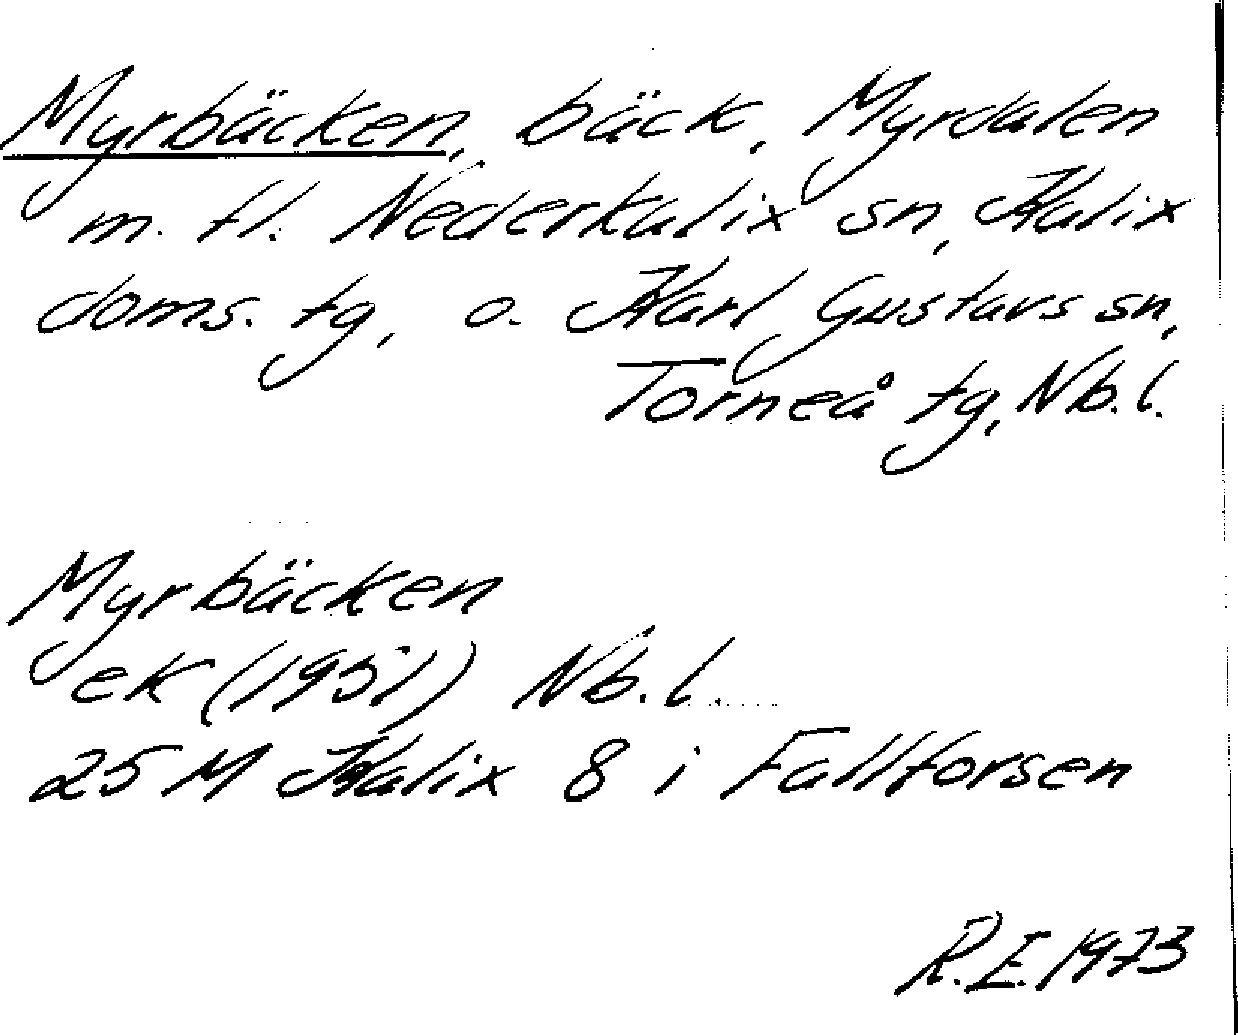 Myrbäcken, bäck, Myrdalen
m. fl. Nederkalix sn, Kalix
doms. tg, o. Karl Gustavs sn,
Torneå tg, Nb. l.
Myrbäcken
ek (1951) Nb. l.
25 M Kalix 8 i Fallforsen
R.E. 1973